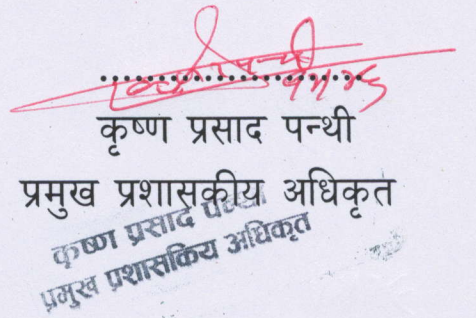 कृष्ण प्रसाद पन्थी
प्रमुख प्रशासकीय अधिकृत
कृष्ण प्रसाद पन्थी
प्रमुख प्रशासकिय अधिकृत